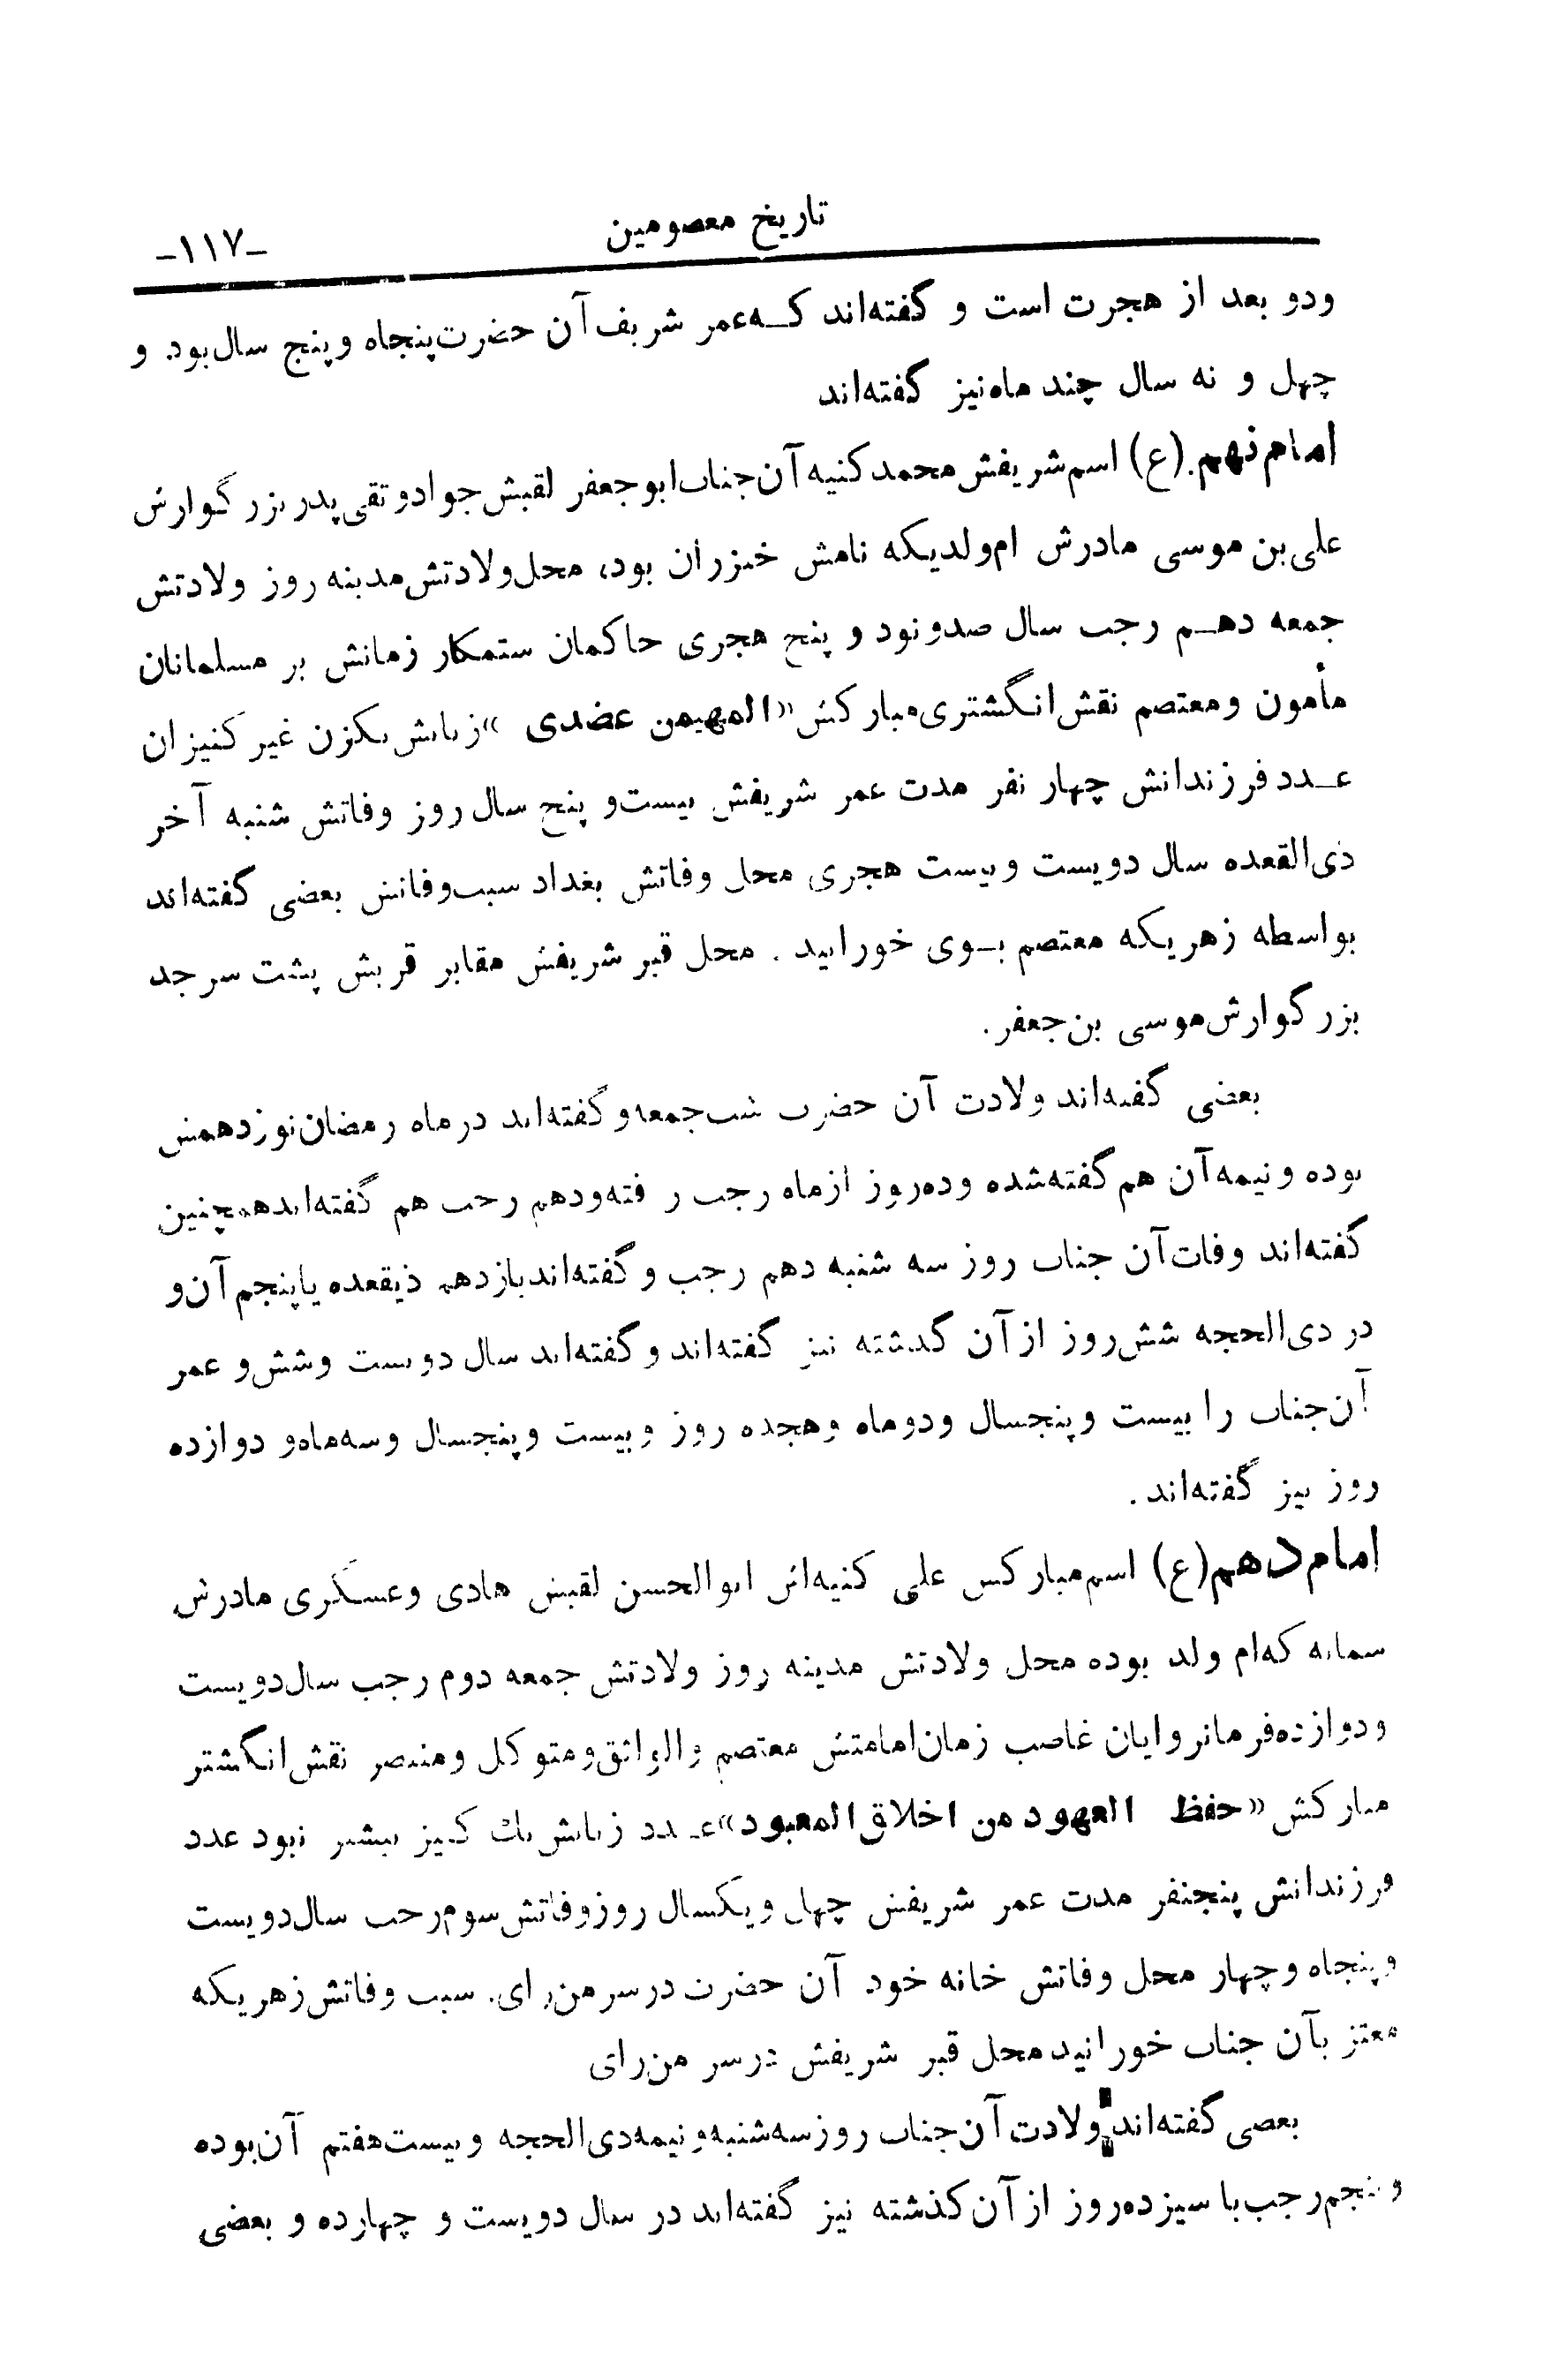 تاریخ معصومین
-۱۱۷-
ودو بعد از هجرت است و گفته‌اند که‌عمر شریف‌آن حضرت‌پنجاه وپنج سال‌بود. و
چهل و نه سال چند ماه‌نیز گفته‌اند
امام نهم.(ع) اسم‌شریفش‌محمد کنیه آن‌جناب‌ابوجعفر لقبش‌جوادوتقی‌پدربزرگوارش
علی‌بن‌موسی مادرش ام‌ولدیکه نامش خیزران بود، محل‌ولادتش‌مدینه روز ولادتش
جمعه دهم رجب سال صدونود و پنج هجری حاکمان ستمکار زمانش بر مسلمانان
مأمون ومعتصم نقش‌انگشتری‌مبارکش«المهیمن عضدی »زنانش‌یکزن غیرکنیزان
عدد فرزندانش چهار نفر مدت عمر شریفش بیست‌و پنج سال‌روز وفاتش شنبه آخر
ذی‌القعده سال دویست وبیست هجری محل وفاتش بغداد سبب‌وفاتش بعضی گفته‌اند
بواسطه زهریکه معتصم بـوی خورانید . محل قبر شریفش مقابر قریش پشت سرجد
بزرگوارش‌موسی بن‌جعفر.
بعضی گفته‌اند ولادت آن حضرت شب‌جمعه‌وگفته‌اند درماه رمضان‌نوزدهمش
بوده ونیمه‌آن هم‌گفته‌شده وده‌روز ازماه رجب رفته‌ودهم رجب هم گفته‌اندهمچنین
گفته‌اند وفات‌آن جناب روز سه شنبه دهم رجب وگفته‌اندیازدهم ذیقعده یاپنجم‌آن‌و
در ذی‌الحجه شش‌روز ازآن گذشته نیز گفته‌اند وگفته‌اند سال دویست وشش‌و عمر
آن‌جناب را بیست وپنجسال ودوماه وهجده روز وبیست وپنجسال وسه‌ماه‌و دوازده
روز نیز گفته‌اند.
امام‌دهم(ع) اسم‌مبارکش علی کنیه‌اش ابوالحسن لقبش هادی وعسکری مادرش
سمانه که‌ام ولد بوده محل ولادتش مدینه روز ولادتش جمعه دوم رجب سال‌دویست
ودوازده‌فرمانروایان غاصب زمان‌امامتش معتصم والواثق‌ومتوکل ومنتصر نقش‌انگشتر
مبارکش«حفظ العهود من اخلاق‌المعبود»عدد زنانش‌یك کنیز بیشتر نبود عدد
فرزندانش پنجنفر مدت عمر شریفش چهل ویکسال روزوفاتش‌سوم‌رجب سال‌دویست
وپنجاه وچهار محل وفاتش خانه خود آن حضرت درسرمن‌رای. سبب وفاتش‌زهریکه
معتز بآن جناب خورانید محل قبر شریفش درسر من‌رای
بعضی گفته‌اند ولادت آن‌جناب روزسه‌شنبه‌ونیمه‌ذی‌الحجه وبیست‌هفتم آن‌بوده
وپنجم‌رجب‌با سیزده‌روز ازآن‌کذشته نیز گفته‌اند در سال دویست و چهارده و بعضی